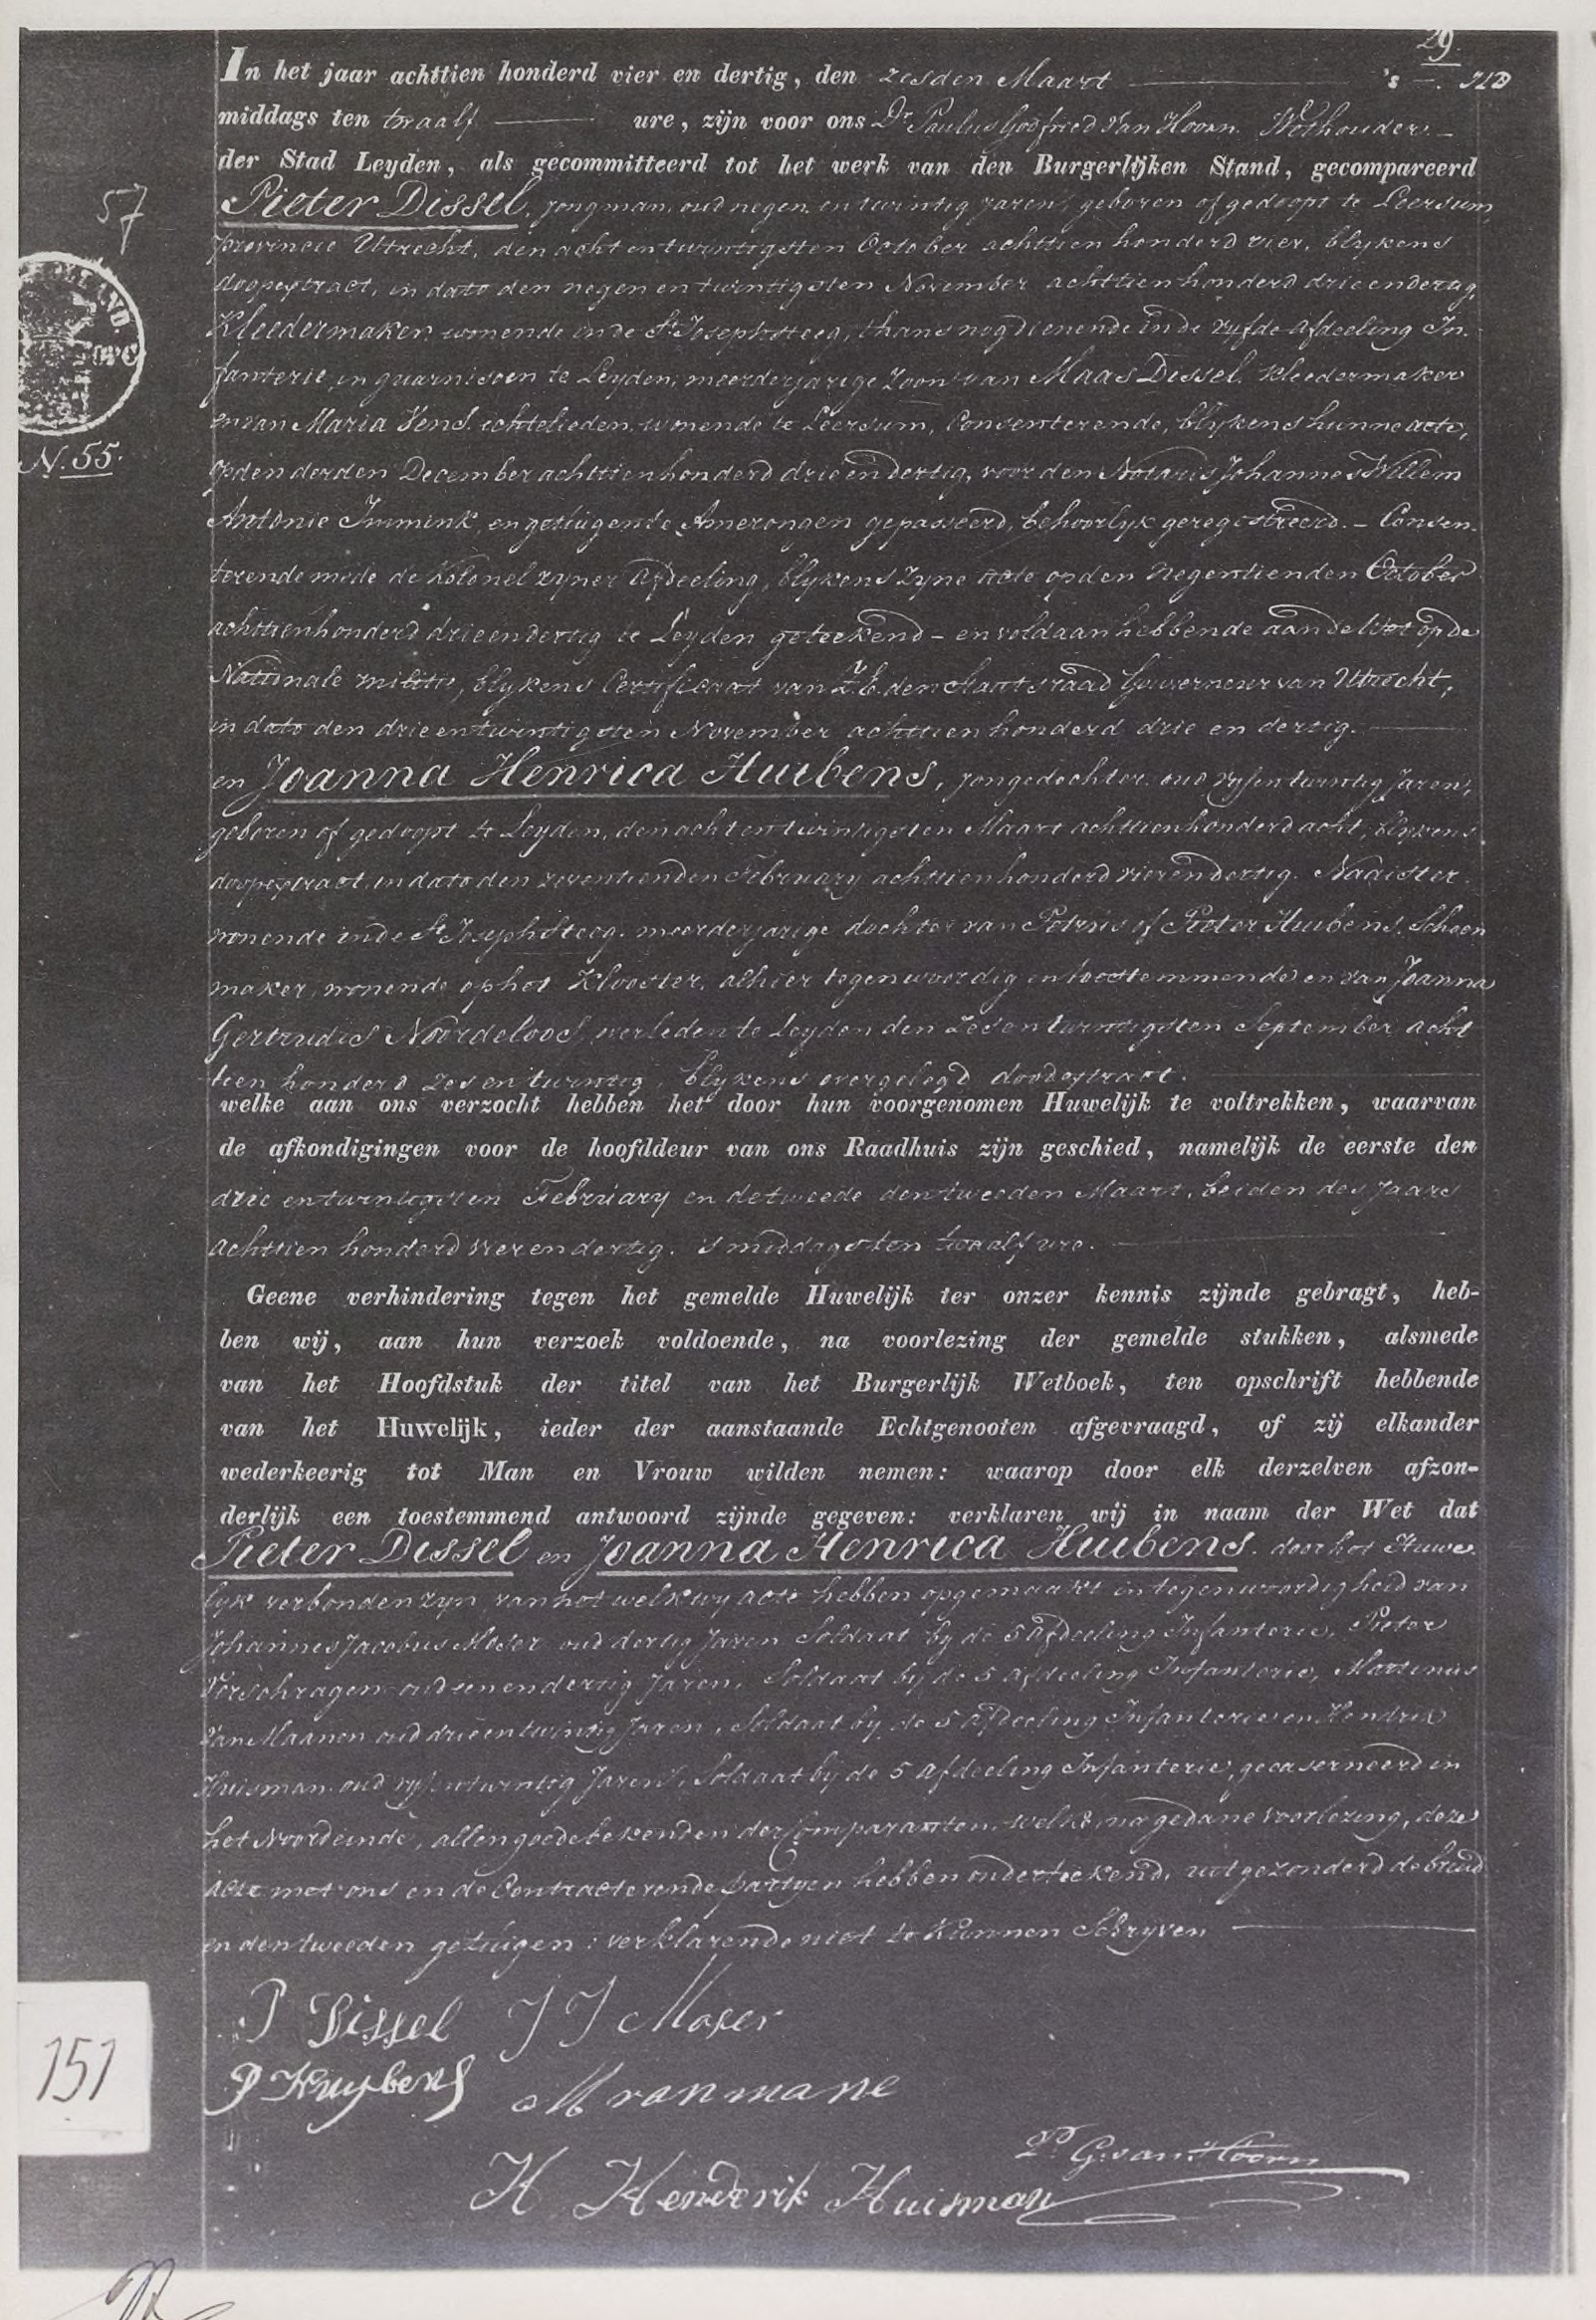 29
In het jaar achttien honderd vier en dertig, den zesden Maart 's
middags ten twaalf ure, zijn voor ons Dr Paulus Godfried van Hoorn Wethouder
der Stad Leyden, als gecommitteerd tot het werk van den Burgerlijken Stand, gecompareerd
57
Pieter Dissel, jongman, oud negen en twintig jaren, geboren of gedoopt te Leersum
provincie Utrecht, den acht en twintigsten October achttien honderd vier, blykens
doopextract, in dato den negen en twintigsten November achttien honderd drie en dertig,
Kleedermaker, wonende in de St Josephsteeg, thans nog dienende in de vyfde Afdeeling In-
fanterie, in guarnisoen te Leyden; meerderjarige Zoon van Maas Dissel, Kleedermaker
en van Maria Vens, echtelieden, wonende te Leersum, Consenterende, blykens hunne acte,
N. 55.
op den derden December achttien honderd drie en dertig, voor den Notaris Johannes Willem
Antonie Immink, en getuigen te Amerongen gepasseerd, behoorlyk geregistreerd. - Consen-
terende mede de Kolonel zyner Afdeeling, blykens zyne acte op den negentienden October
achttien honderd drie en dertig te Leyden geteekend - en voldaan hebbende aan de Wet op de
Nationale militie, blykens Certificaat van Z.E. den Staatsraad Gouverneur van Utrecht,
in dato den drie en twintigsten November achttien honderd drie en dertig.
en Joanna Henrica Huibens, jongedochter, oud vyf en twintig Jaren,
geboren of gedoopt te Leyden, den acht en twintigsten Maart achttien honderd acht, blykens
doopextract, in dato den zeventienden February achttien honderd vier en dertig. Naaister
wonende in de St Josephsteeg, meerderjarige dochter van Petrus of Pieter Huibens, Schoen
maker, wonende op het Klooster, alhier tegenwoordig en toestemmende en van Joanna
Gertrudis Noordeloos, overleden te Leyden den Zes en twintigsten September acht
tien honderd zes en twintig, blykens overgelegd doodextract.
welke aan ons verzocht hebben het door hun voorgenomen Huwelijk te voltrekken, waarvan
de afkondigingen voor de hoofddeur van ons Raadhuis zijn geschied, namelijk de eerste den
drie en twintigsten February en de tweede den tweeden Maart, beiden des Jaars
achttien honderd vier en dertig. 's middags ten twaalf ure.
Geene verhindering tegen het gemelde Huwelijk ter onzer kennis zijnde gebragt, heb-
ben wij, aan hun verzoek voldoende, na voorlezing der gemelde stukken, alsmede
van het Hoofdstuk der titel van het Burgerlijk Wetboek, ten opschrift hebbende
van het Huwelijk, ieder der aanstaande Echtgenooten afgevraagd, of zij elkander
wederkeerig tot Man en Vrouw wilden nemen: waarop door elk derzelven afzon-
derlijk een toestemmend antwoord zijnde gegeven: verklaren wij in naam der Wet dat
Pieter Dissel en Joanna Henrica Huibens, door het Huwe-
lyk verbonden zyn, van het welk wy acte hebben opgemaakt in tegenwoordigheid van
Johannes Jacobus Moser oud dertig Jaren, Soldaat by de 5 Afdeeling Infanterie, Pieter
Verschragen oud een en dertig Jaren, Soldaat by de 5 Afdeeling Infanterie, Martinus
van Maanen oud drie en twintig Jaren, Soldaat by de 5 Afdeeling Infanterie en Hendrik
Huisman oud vyf en twintig Jaren, Soldaat by de 5 Afdeeling Infanterie, gecaserneerd in
het Noordeinde, allen goede bekenden der Comparanten, welke, na gedane voorlezing, deze
acte met ons en de Contracterende partyen hebben onderteekend, uitgezonderd de bruid
en den tweeden getuigen: verklarende niet te kunnen Schryven
P Dissel J J Moser
P Huybens M van mane
151
P. G. van Hoorn
H Hendrik Huisman